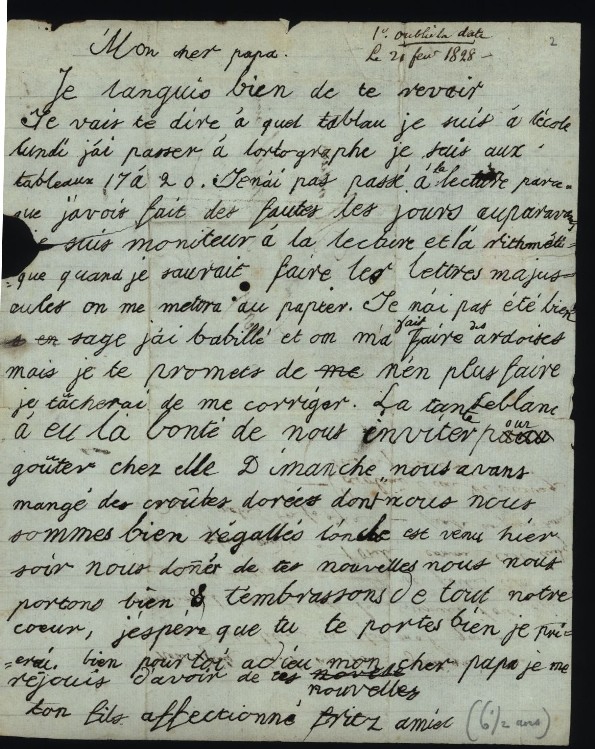 1r. oublié la date
2
Mon cher papa.
Le 21 fevr 1828 -
Je languis bien de te revoir
Je vais te dire à quel tablau je suis à lécole
lundi jái passer á lortographe je suis aux
tableaux 17 á 20. Je nái pas passé á la lecture parce=
que j'avois fait des fautes les jours auparavant
je suis moniteur á la lecture et lá rithméti=
=que quand je saurait faire les lettres majus=
cules on me metera au papier. Je nái pas été bien
sage jái babillé et on má fait faire des ardoises
mais je te promets de me nén plus faire
je tâcherai de me corriger. La tante Leblanc
á eu la bonté de nous inviter pour
goûter chez elle Dimanche nous avons
mangé des croûtes dorées dont nous nous
sommes bien régallés lóncle est venu hier
soir nous doñér de tes nouvelles nous nous
portons bien & témbrassons de tout notre
coeur, jéspére que tu te portes bien je pri=
=erai bien pour toi adieu mon cher papa je me
réjouis dávoir de tes
nouvelles
ton fils affectionné fritz amiel (6 1/2 ans)